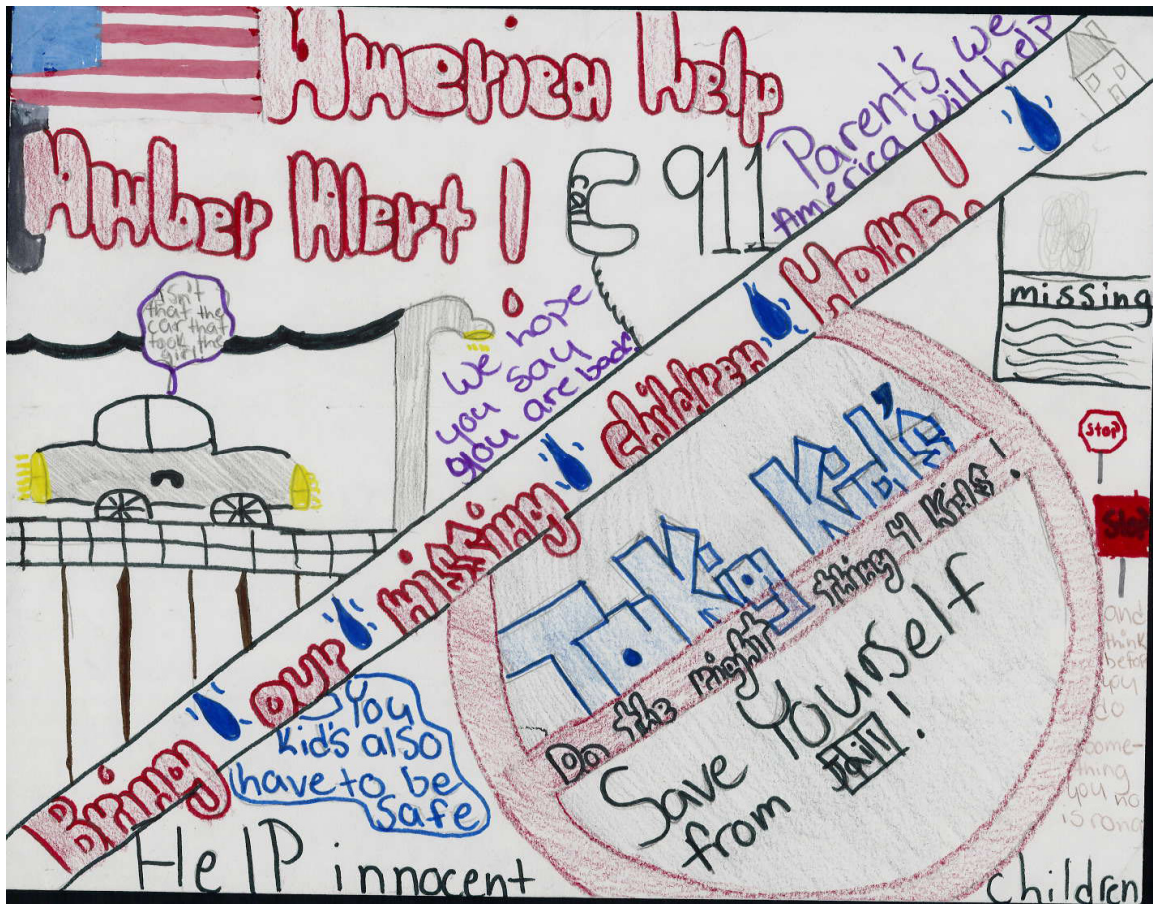 America Help
Amber Alert!
call
911
Parent's we
America will help
isn't
that the
car that
took the
girl!
We hope
you say
you are back!
Bring our missing children Home!
missing
Stop
Stop
and
think
befor
you
do
some-
thing
you no
is rong
Taking Kid's
Do the right thing 4 Kids!
Save Yourself
from Jail!
You
kid's also
have to be
Safe
HelP innocent children